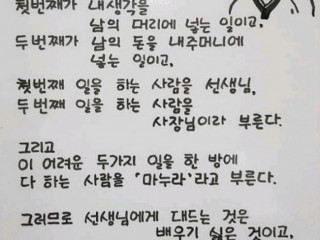 첫번째가 내생각을
남의 머리에 넣는 일이고,
두번째가 남의 돈을 내주머니에
넣는 일이고,
첫번째 일을 하는 사람을 선생님,
두번째 일을 하는 사람을
사장님이라 부른다.
그리고
이 어려운 두가지 일을 한 방에
다 하는 사람을 '마누라'라고 부른다.
그러므로 선생님에게 대드는 것은
배우기 싫은 것이고,